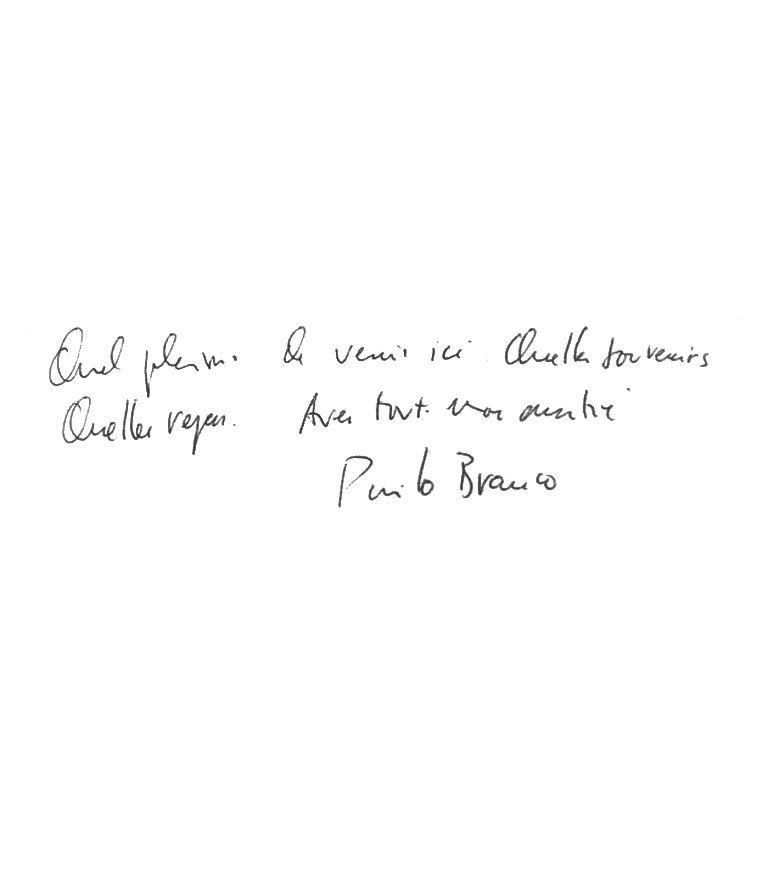 Quel plaisir de venir ici Quelles souvenirs
Quelles repas. Avec tout mon amitié
Paulo Branco